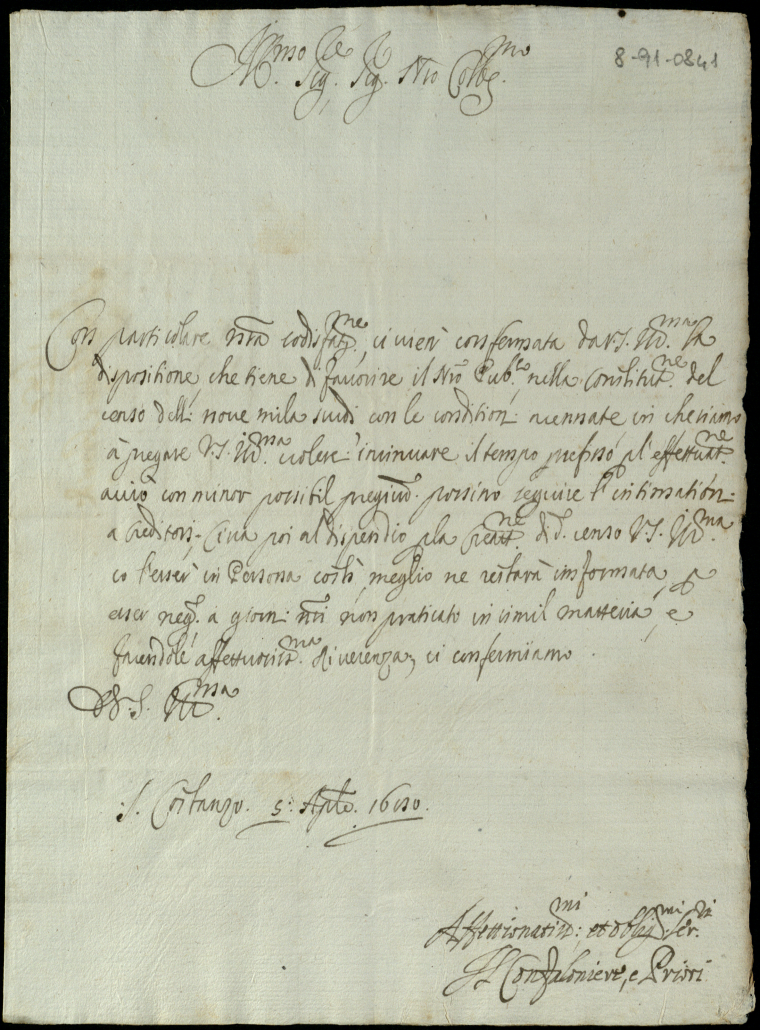 Ill.mo Sig.re Sig.r N.ro Col.mo
8-91-0841
Con particolare nostra sodisfat.ne, ci vien confermata da V.S. Ill.ma la
dispositione, che tiene di favorire il N.ro Pub.co nella Constitut.ne del
censo delli: nove mila scudi con le condition: accennate in che siamo
à pregare V.S. Ill.ma volere il tempo prefisso p l'effettuat.ne
acciò con minor possibil pregiud. possino seguire l'intimation:
a Creditori, Circa poi al dispendio p la Creat.ne di d. censo V.S. Ill.ma
co l'esser in Persona costì, meglio ne restarà informata, p
esser neg. a giorn: n.ri non praticato in simil matteria, e
facendole affettuosiss.ma Riverenza, ci confermiamo.
D V.S. Ill.ma
S. Costanzo. 5:
Affettionatiss.mi; et oblig.mi Ser.ri
Il Confaloniere, e Priori